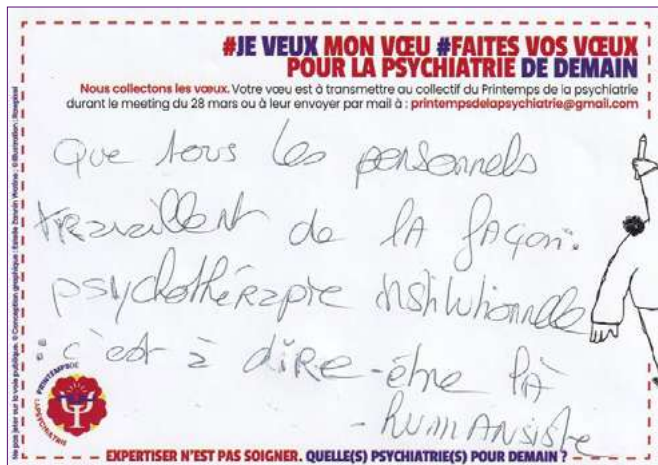 #JE VEUX MON VŒU #FAITES VOS VŒUX
POUR LA PSYCHIATRIE DE DEMAIN
Nous collectons les vœux. Votre vœu est à transmettre au collectif du Printemps de la psychiatrie
durant le meeting du 28 mars ou à leur envoyer par mail à : printempsdelapsychiatrie@gmail.com
Que tous les personnels
travaillent de la façon.
psychothérapie institutionnelle
: c'est à dire - être là
- humansiste
PRINTEMPS DE
LA PSYCHIATRIE
EXPERTISER N'EST PAS SOIGNER. QUELLE(S) PSYCHIATRIE(S) POUR DEMAIN ?
Ne pas jeter sur la voie publique. © Conception graphique : Estelle